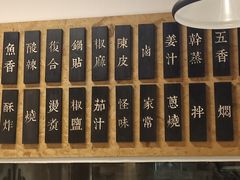 魚香
酸辣
復合
鍋貼
椒麻
陳皮
卤
姜汁
幹蒸
五香
酥炸
燒
燙
椒鹽
茄汁
怪味
家常
蔥燒
拌
燜